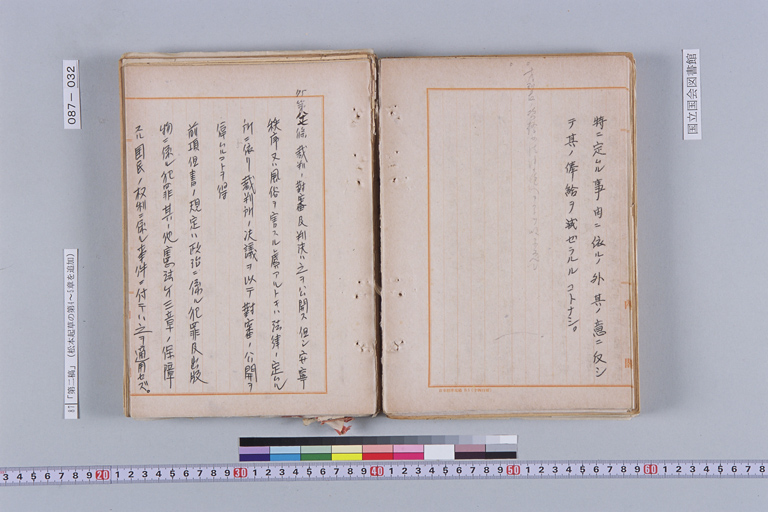 特ニ定ムル事由ニ依ルノ外其ノ意ニ反シ
テ其ノ俸給ヲ減ゼラルルコトナシ。
裁判ノ對審及判決ハ之ヲ公開ス但シ安寧
秩序又ハ風俗ヲ害スル虞アルトキハ法律ノ定ムル
所ニ依リ裁判所ノ決議ヲ以テ對審ノ公開ヲ
停ムルコトヲ得
前項但書ノ規定ハ政治ニ係ル犯罪及出版
物ニ係ル犯罪其ノ他憲法第三章ノ保障
スル國民ノ權利ニ係ル事件ニ付テハ之ヲ適用セズ。
国立国会図書館
087-032
87 「第二稿」(松本起草の第4~5章を追加)
3 4 5 6 7 8 9 20 1 2 3 4 5 6 7 8 9 30 1 2 3 4 5 6 7 8 9 40 1 2 3 4 5 6 7 8 9 50 1 2 3 4 5 6 7 8 9 60 1 2 3 4 5 6 7 8